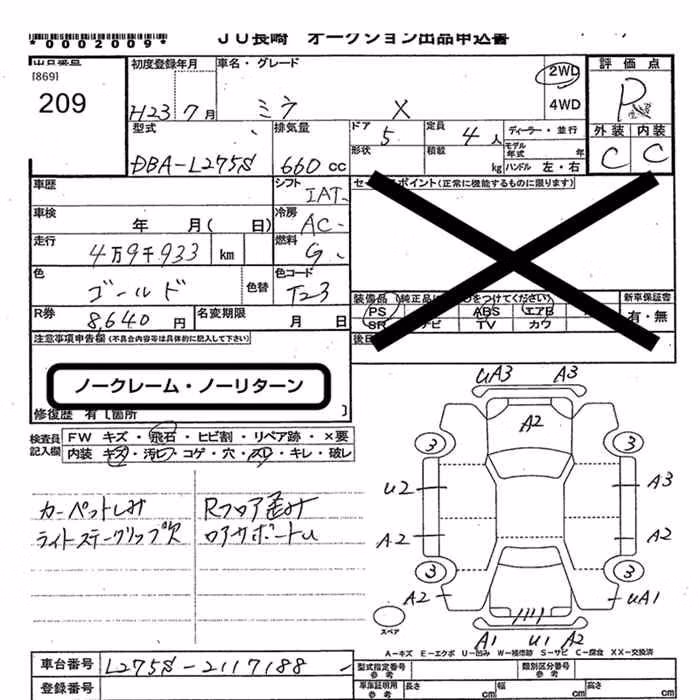 *0002009*
JU長崎 オークション出品申込書
出品番号 初度登録年月 車名・グレード 評価点
[869]
209
H23 7月 ミラ X 2WD
4WD
P
型式 排気量 ドア 5 定員 4人 ディーラー・並行 外装 内装
形状 積載 kg モデル年式 年
ハンドル 左・右
DBA-L275S 660cc C C
車歴 シフト IAT セールスポイント(正常に機能するものに限ります)
車検 年 月( 日) 冷房 AC
走行 4万9千933 km 燃料 G
色 ゴールド 色替 色コード T23
装備品 (純正品に○をつけてください) 新車保証書
PS ABS エアB 有・無
SR ナビ TV カワ
R券 8,640円 名変期限 月 日
注意事項申告欄(不具合内容等は具体的に記入して下さい)
ノークレーム・ノーリターン
修復歴 有[箇所 ]
検査員記入欄 FW キズ・飛石・ヒビ割・リペア跡・×要
内装 キズ・汚れ・コゲ・穴・スレ・キレ・破レ
カーペットしみ Rフロア歪み
ライトステークリップ欠 ロアサポートu
uA3 A3
A2
3 3
u2 A3
A2 A2
3 3
A2 uA1
スペア
A1 u1 A2
A-キズ E-エクボ U-凹み W-補修跡 S-サビ C-腐食 XX-交換済
車台番号 L275S-2117188
型式指定番号 参考 類別区分番号 参考
登録番号
車庫証明用 参考 長さ cm 幅 cm 高さ cm